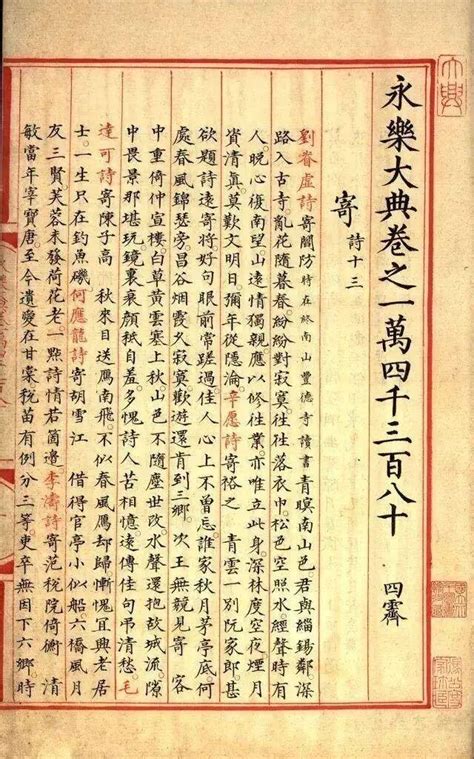 永樂大典卷之一萬四千三百八十 四霽
寄 詩十三
劉眘虛詩寄閻防 時在終南山豐德寺讀書 青暝南山色君與緇錫鄰深
路入古寺亂花隨暮春紛紛對寂寞往往落衣巾松色空照水經聲時有
人晚心復南望山遠情獨親應以修往業亦唯立此身深林度空夜煙月
資清真莫歎文明日彌年從隱淪辛愿詩寄裕之 青雲一別阮家郎甚
欲題詩遠寄將好句眼前常蹉過佳人心上不曾忘誰家秋月茅亭底何
處春風錦瑟旁昌谷烟霞久寂寞歡遊還肯到三鄉 次王無競見寄 客
中重倚仲宣樓白草黃雲塞上秋山色不隨塵世改水聲還抱故城流隙
中畏景那堪玩鏡裏衰顏祗自羞多愧詩人苦相憶遠傳佳句弔清愁毛
達可詩寄陳子高 秋來目送鴈南飛不似春風鴈却歸慚愧宜興老居
士一生只在釣魚磯何應龍詩寄胡雪江 借得官亭小似船六橋風月
友三賢芙蓉未發荷花老一點詩情若箇邊李濤詩寄范稅院倚 清
敏當年宰寶唐至今遺愛在甘棠稅苗有例分三等吏卒無因下六鄉時